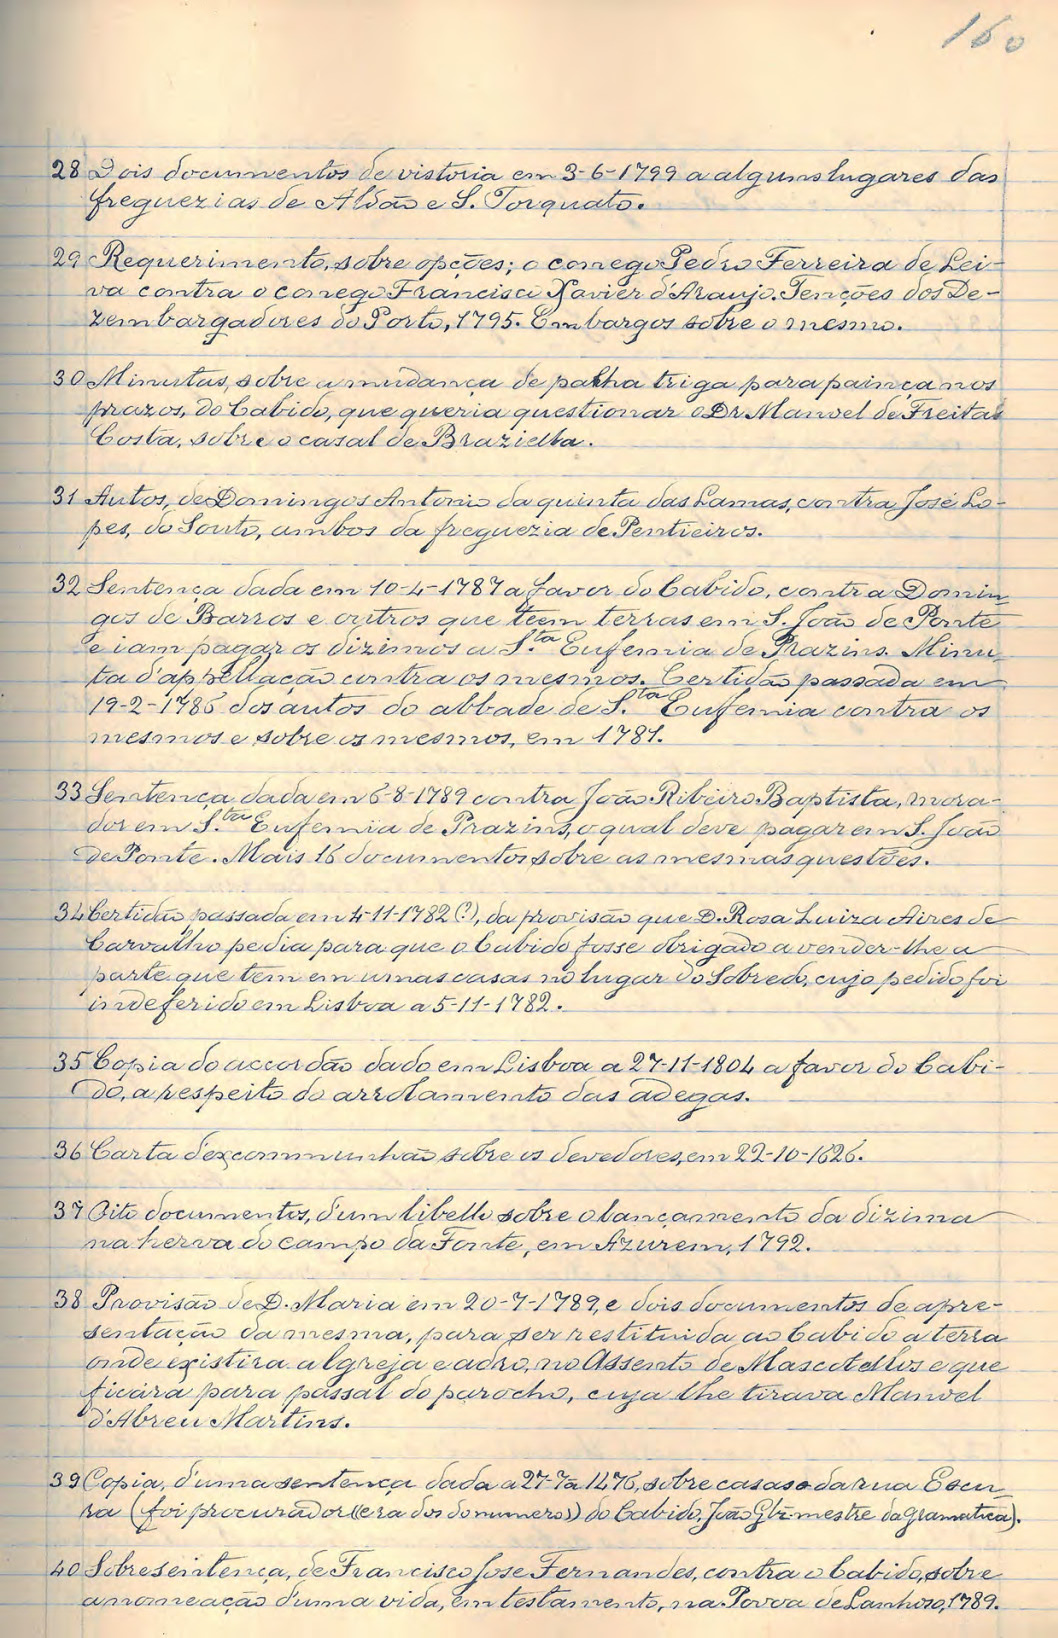 160
28 Dois documentos de vistoria em 3-6-1799 a alguns lugares das
freguezias de Aldão e S. Torquato.
29 Requerimento, sobre opções; o conego Pedro Ferreira de Lei-
va contra o conego Francisco Xavier d'Araujo. Tenções dos De-
zembargadores do Porto, 1795. Embargos sobre o mesmo.
30 Minutas, sobre a mudança de palha triga para painça nos
prazos, do Cabido, que queria questionar o Dr. Manoel de Freitas
Costa, sobre o casal de Braziella.
31 Autos, de Domingos Antonio da quinta das Lamas, contra José Lo-
pes, do Souto, ambos da freguezia de Pentieiros.
32 Sentença dada em 10-4-1787 a favor do Cabido, contra Domin-
gos de Barros e outros que teem terras em S. João de Ponte
e iam pagar os dizimos a S.ta Eufemia de Prazins. Minu-
ta d'appellação contra os mesmos. Certidão passada em
19-2-1786 dos autos do abbade de S.ta Eufemia contra os
mesmos e sobre os mesmos, em 1781.
33 Sentença dada em 6-8-1789 contra João Ribeiro Baptista, mora-
dor em S.ta Eufemia de Prazins, o qual deve pagar em S. João
de Ponte. Mais 16 documentos sobre as mesmas questões.
34 Certidão passada em 4-11-1782 (?), da provisão que D. Rosa Luiza Aires de
Carvalho pedia para que o Cabido fosse obrigado a vender-lhe a
parte que tem em umas casas no lugar do Sobredo, cujo pedido foi
indeferido em Lisboa a 5-11-1782.
35 Copia do accordão dado em Lisboa a 27-11-1804 a favor do Cabi-
do, a respeito do arrolamento das adegas.
36 Carta d'excommunhão sobre os devedores, em 22-10-1626.
37 Oito documentos, d'um libello sobre o lançamento da dizima
na herva do campo da Fonte, em Azurem, 1792.
38 Provisão de D. Maria em 20-7-1789, e dois documentos de apre-
sentação da mesma, para ser restituida ao Cabido a terra
onde existira a Igreja e adro, no Assento de Mascotellos e que
ficára para passal do parocho, cuja lhe tirava Manoel
d'Abreu Martins.
39 Copia, d'uma sentença dada a 27-7a 1476, sobre casas da rua Escu-
ra (foi procurador ((era dos do numero)) do Cabido, João Glz- mestre da Gramatica).
40 Sobresentença, de Francisco Jose Fernandes, contra o Cabido, sobre
a nomeação d'uma vida, em testamento, na Povoa de Lanhoso, 1789.